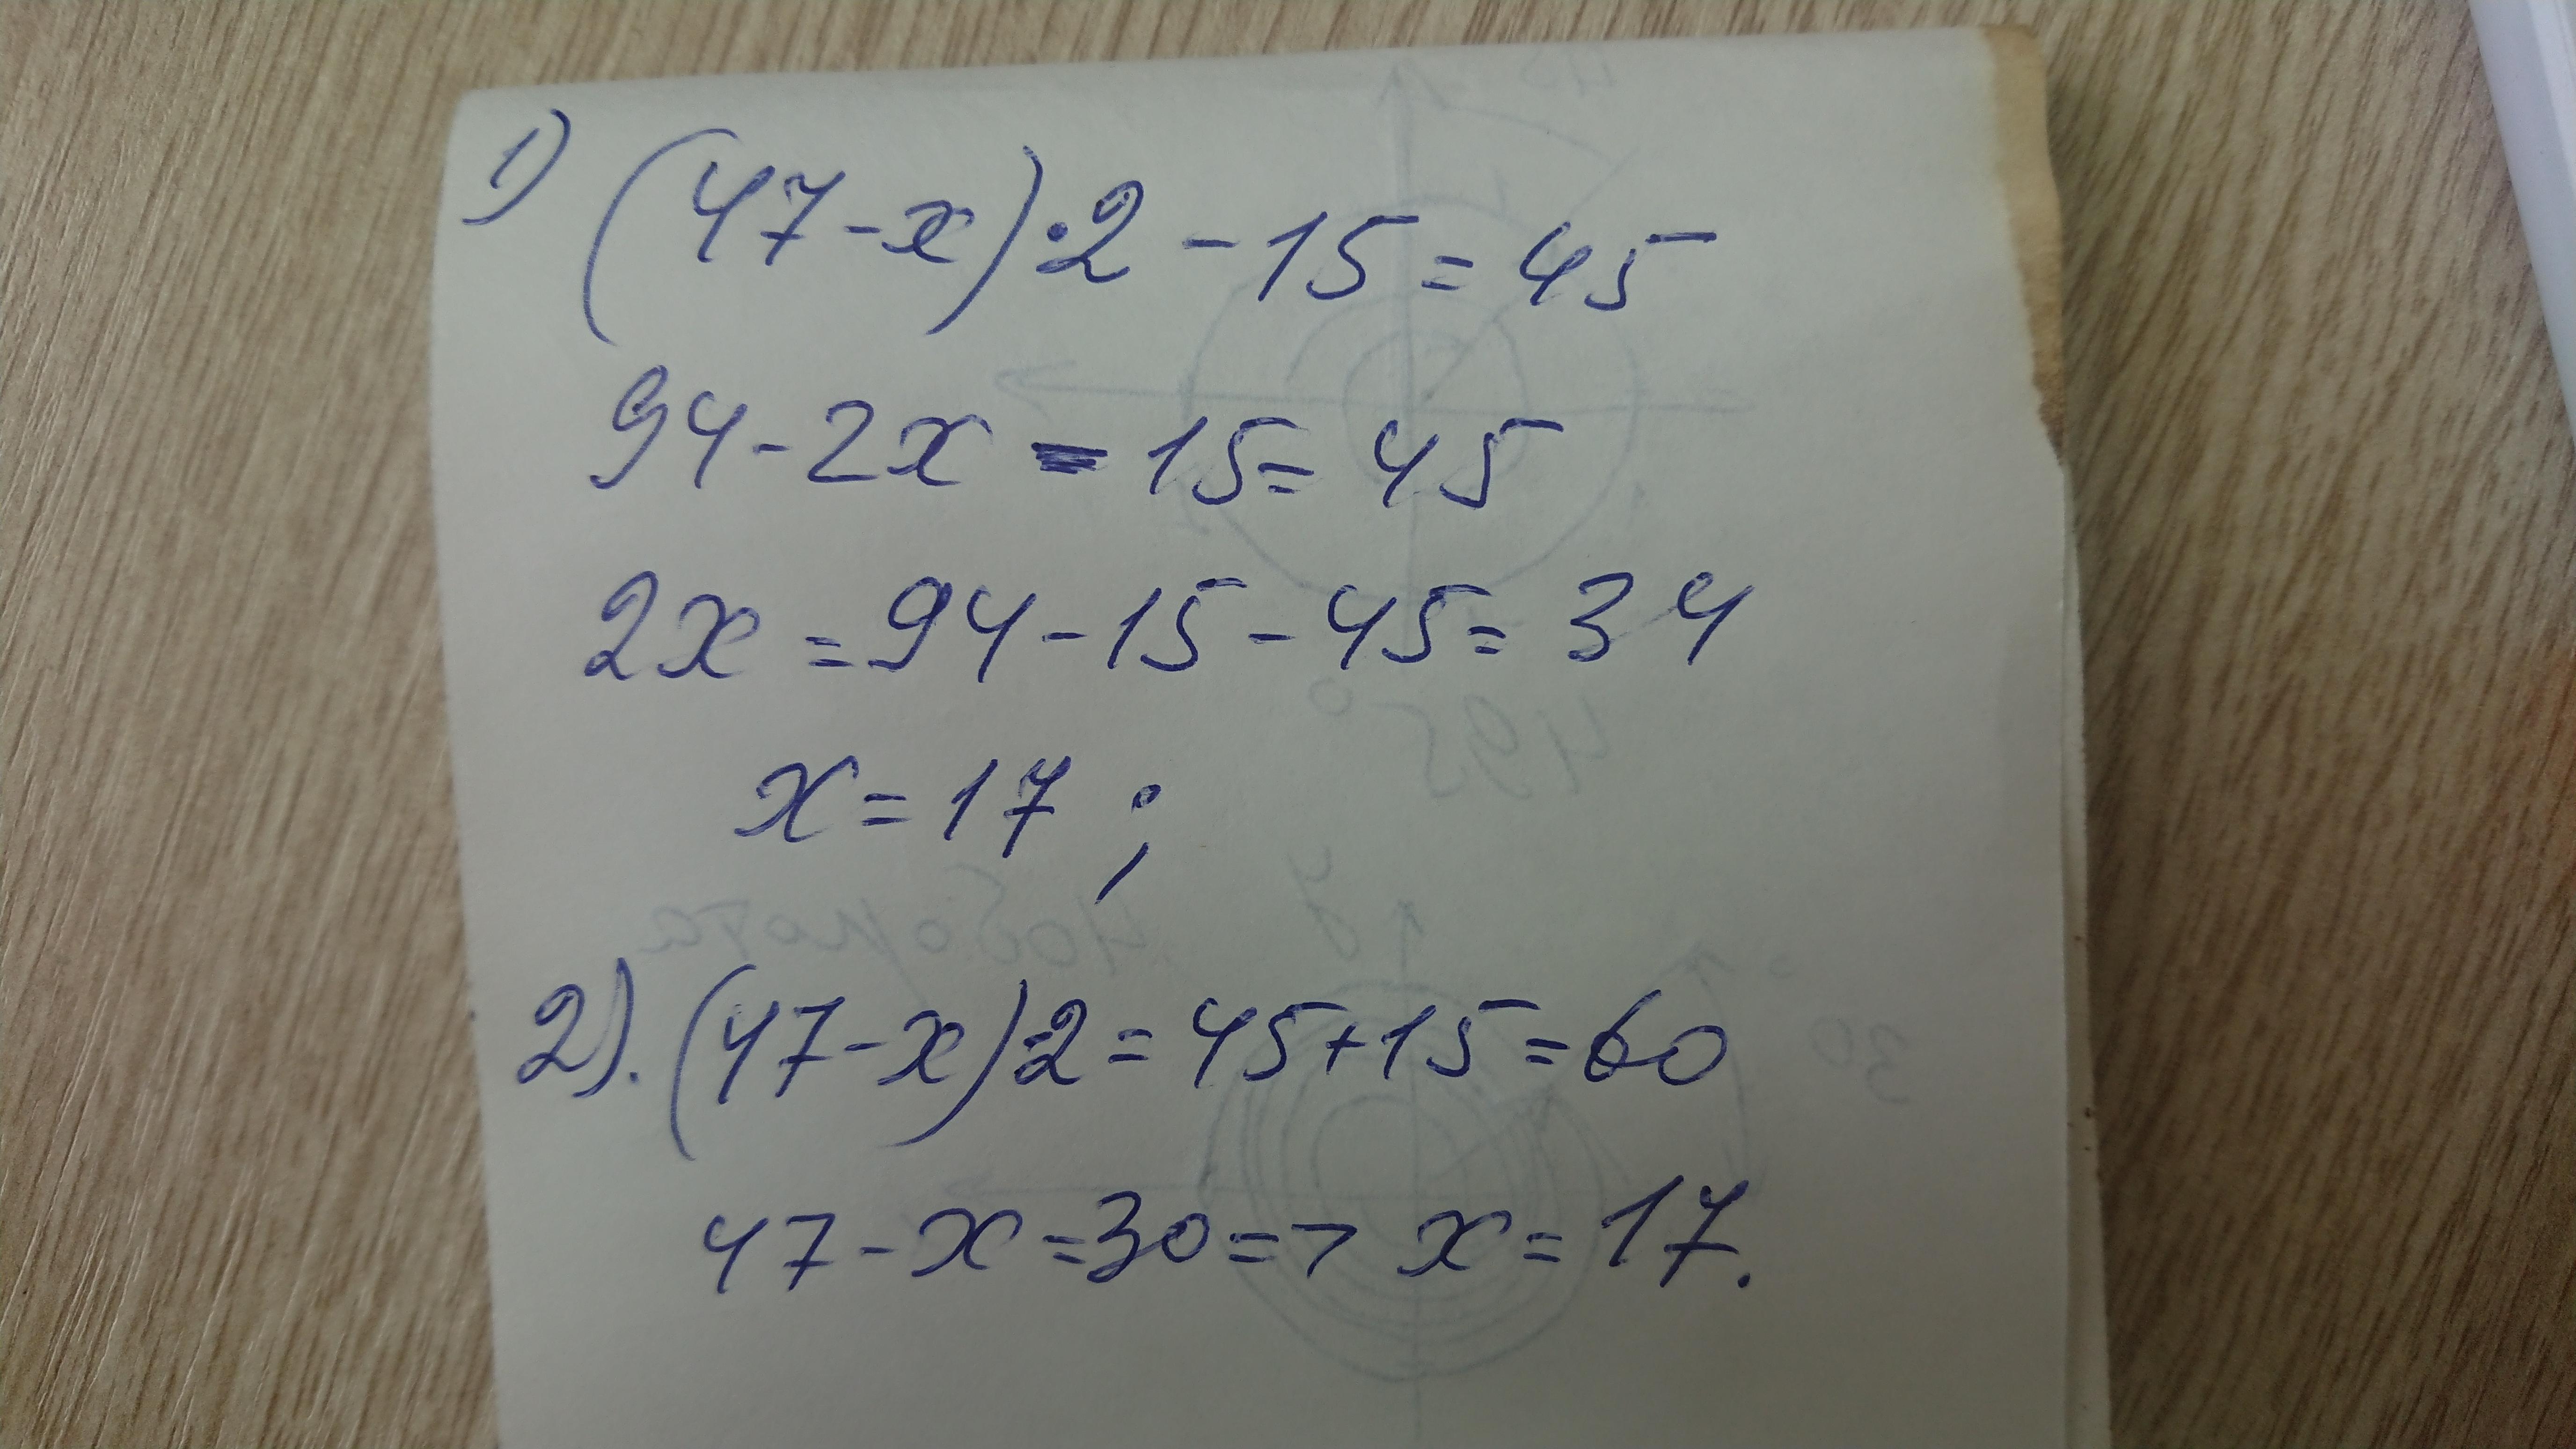 1) (47-x)·2 -15=45
94-2x-15=45
2x=94-15-45=34
x=17;
2). (47-x)·2=45+15=60
47-x=30=> x=17.